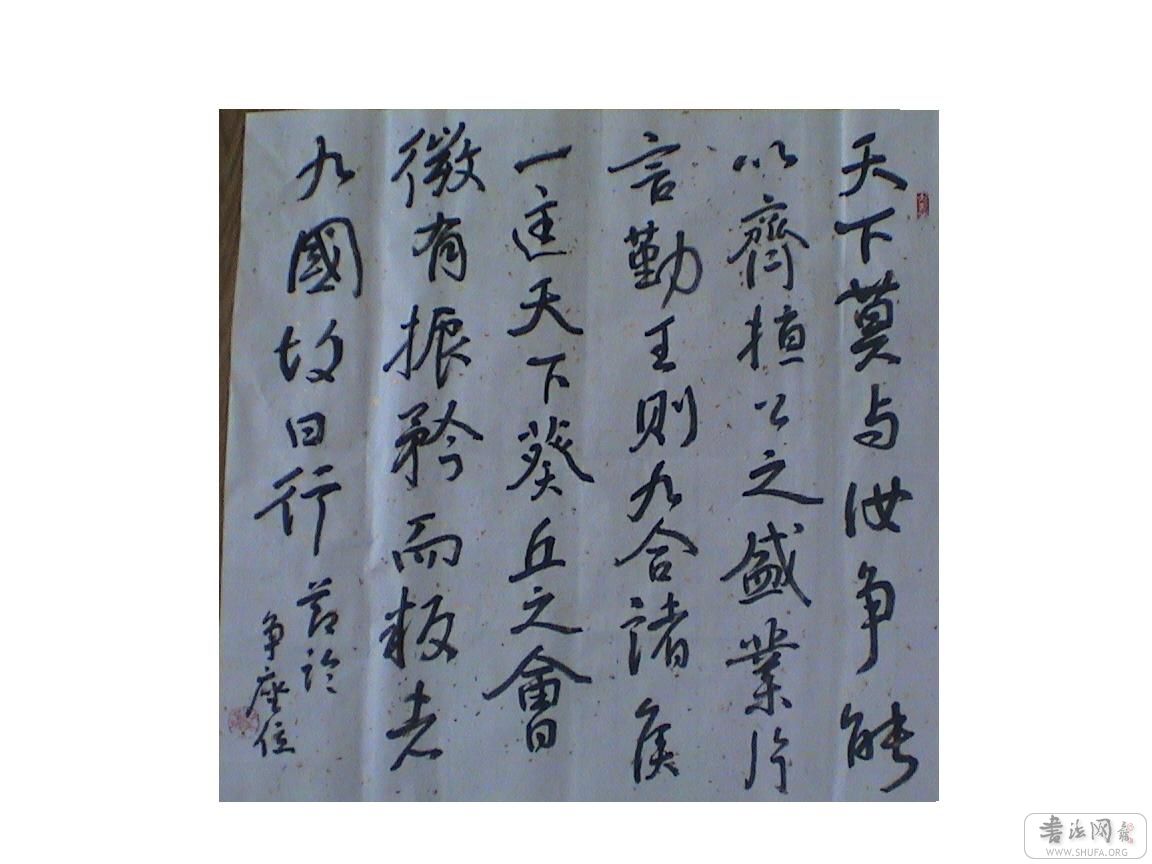 天下莫与汝争能
以齊桓公之盛業片
言勤王则九合諸侯
一匡天下葵丘之會
微有振矜而叛者
九國故曰行
节於
争座位
書法网
WWW.SHUFA.ORG